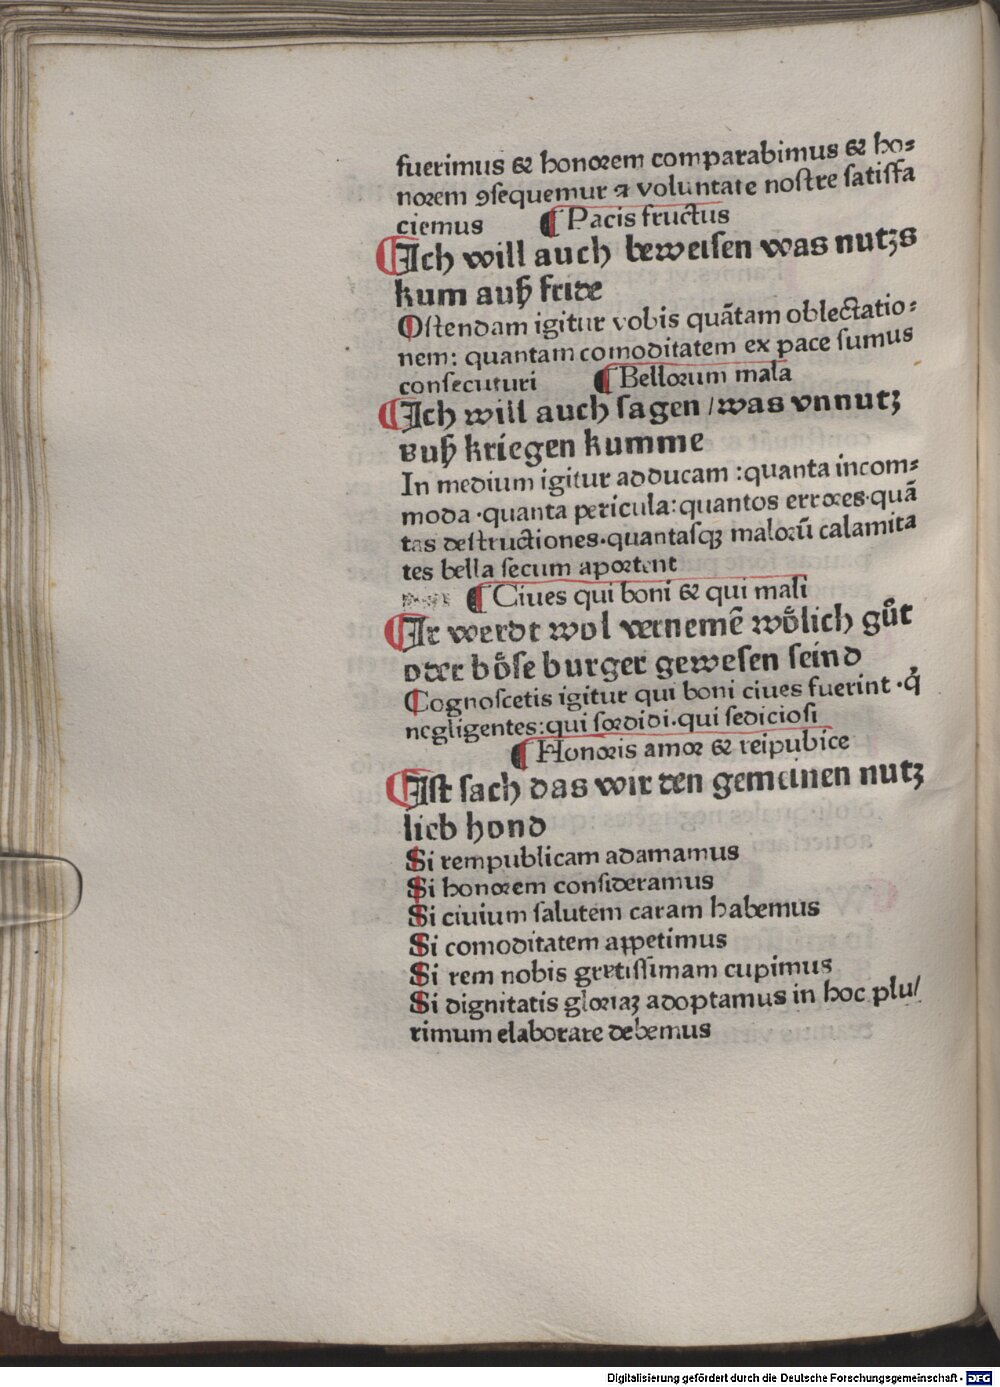 fuerimus & honorem comparabimus & ho⸗
norem ꝯsequemur ⁊ voluntate nostre satisfa
ciemus ¶ Pacis fructus
¶ Ich will auch beweisen was nutzs
kum auß fride
Ostendam igitur vobis quātam oblectatio⸗
nem: quantam comoditatem ex pace sumus
consecuturi ¶ Bellorum mala
¶ Ich will auch sagen / was vnnutz
vuß kriegen kumme
In medium igitur adducam : quanta incom⸗
moda · quanta pericula: quantos errores · quā
tas destructiones · quantasqꝫ malorū calamita
tes bella secum aportent
¶ Ciues qui boni & qui mali
¶ Ir werdt wol vernemē wo̊lich gůt
oder bo̊se burger gewesen seind
Cognoscetis igitur qui boni ciues fuerint · q̇
negligentes: qui sordidi · qui sediciosi
¶ Honoris amor & reipubice
¶ Ist sach das wir den gemeinen nutz
lieb hond
Si rempublicam adamamus
Si honorem consideramus
Si ciuium salutem caram habemus
Si comoditatem appetimus
Si rem nobis gretissimam cupimus
Si dignitatis gloriaꝫ adoptamus in hoc plu/
rimum elaborare debemus
Digitalisierung gefördert durch die Deutsche Forschungsgemeinschaft - DFG